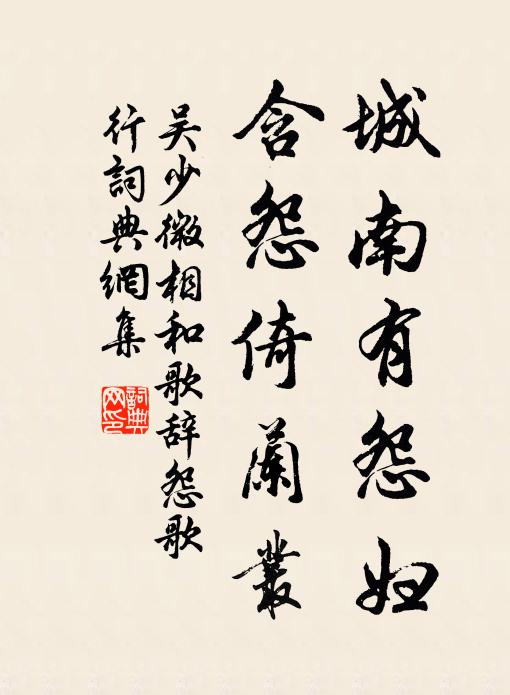 城南有怨妇
含怨倚蘭叢
吴少微相和歌辞怨歌
行詞典網集
詞典网印